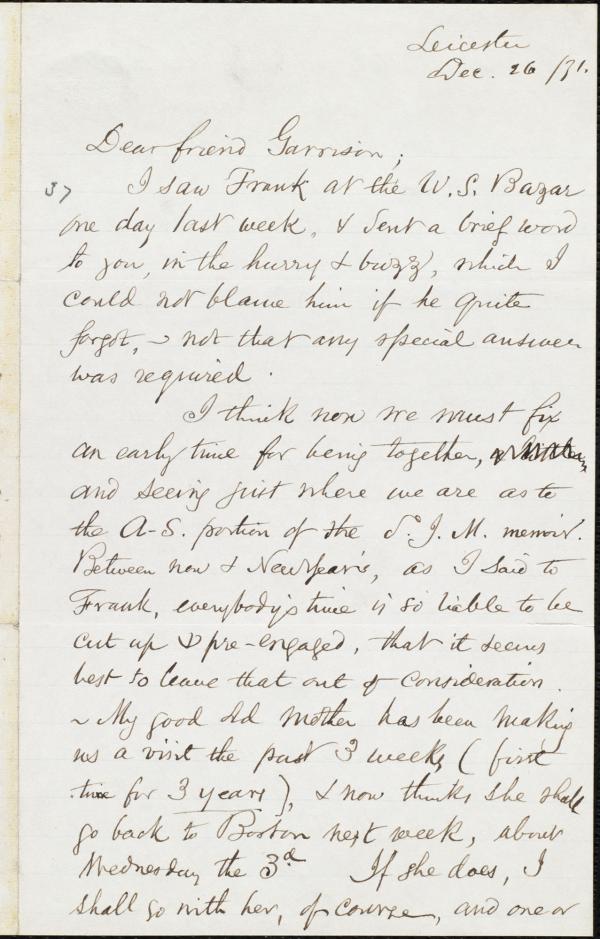 Leicester
Dec. 26 /71.
Dear friend Garrison;
37 I saw Frank at the W. S. Bazar
one day last week, & sent a brief word
to you, in the hurry & buzz, which I
could not blame him if he quite
forgot, ~ not that any special answer
was required.
I think now we must fix
an early time for being together,
and seeing just where we are as to
the A-S. portion of the S. J. M. memoir.
Between now & New Year's, as I said to
Frank, everybody's time is so liable to be
cut up & pre-engaged, that it seems
best to leave that out of consideration.
~ My good old mother has been making
us a visit the past 3 weeks (first
time for 3 years), & now thinks she shall
go back to Boston next week, about
Wednesday the 3d If she does, I
shall go with her, of course, and one or